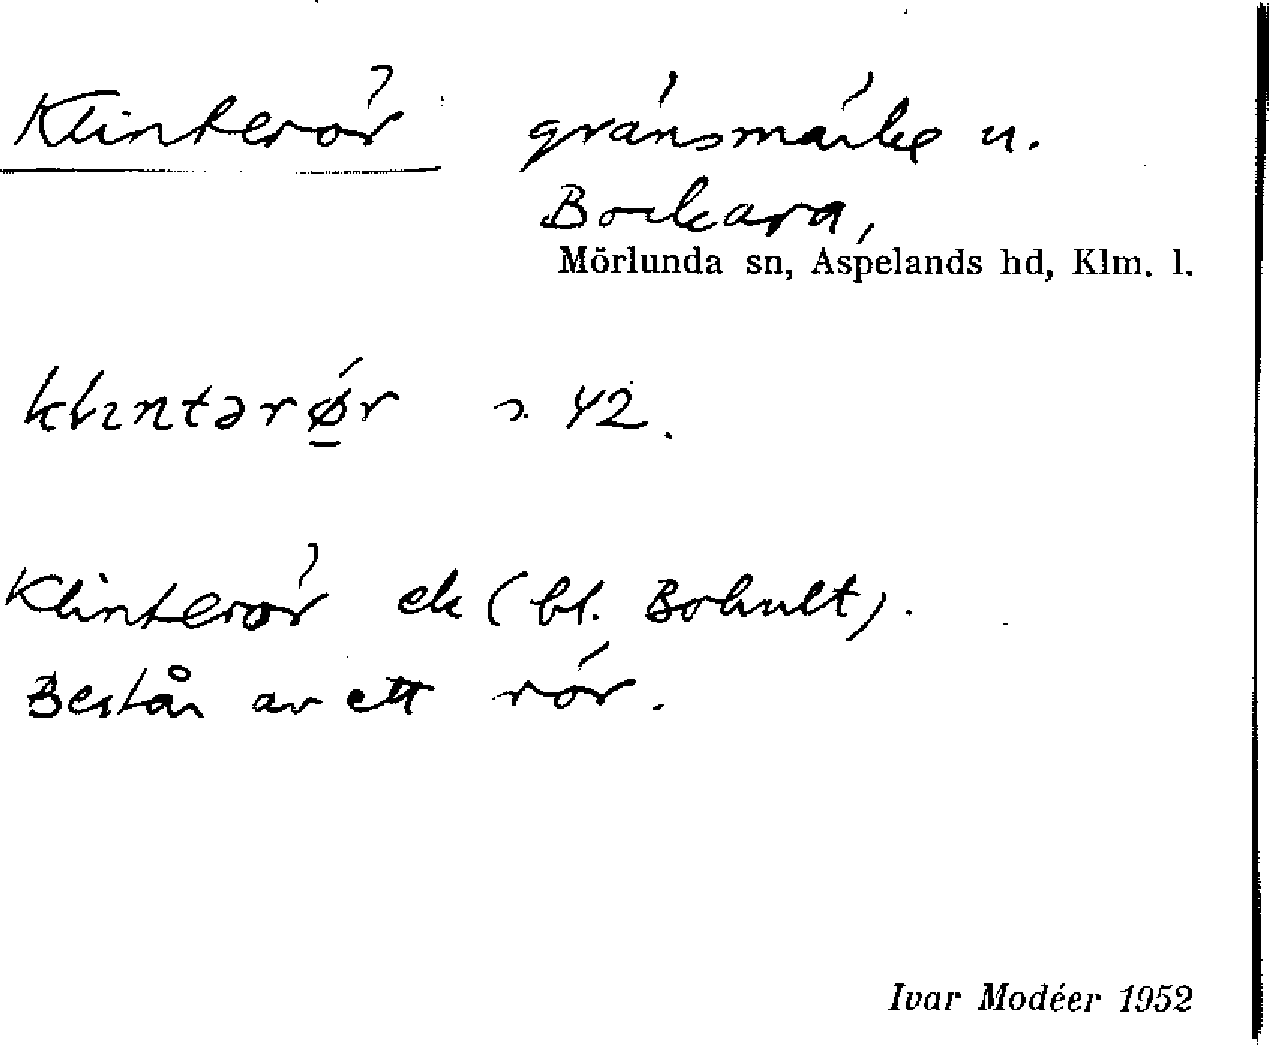 Klinterör gränsmärke u.
Bockara,
Mörlunda sn, Aspelands hd, Klm. l.
klıntərǿ̱r 42.
Klinterör ek (bl. Bohult).
Består av ett rör.
Ivar Modéer 1952